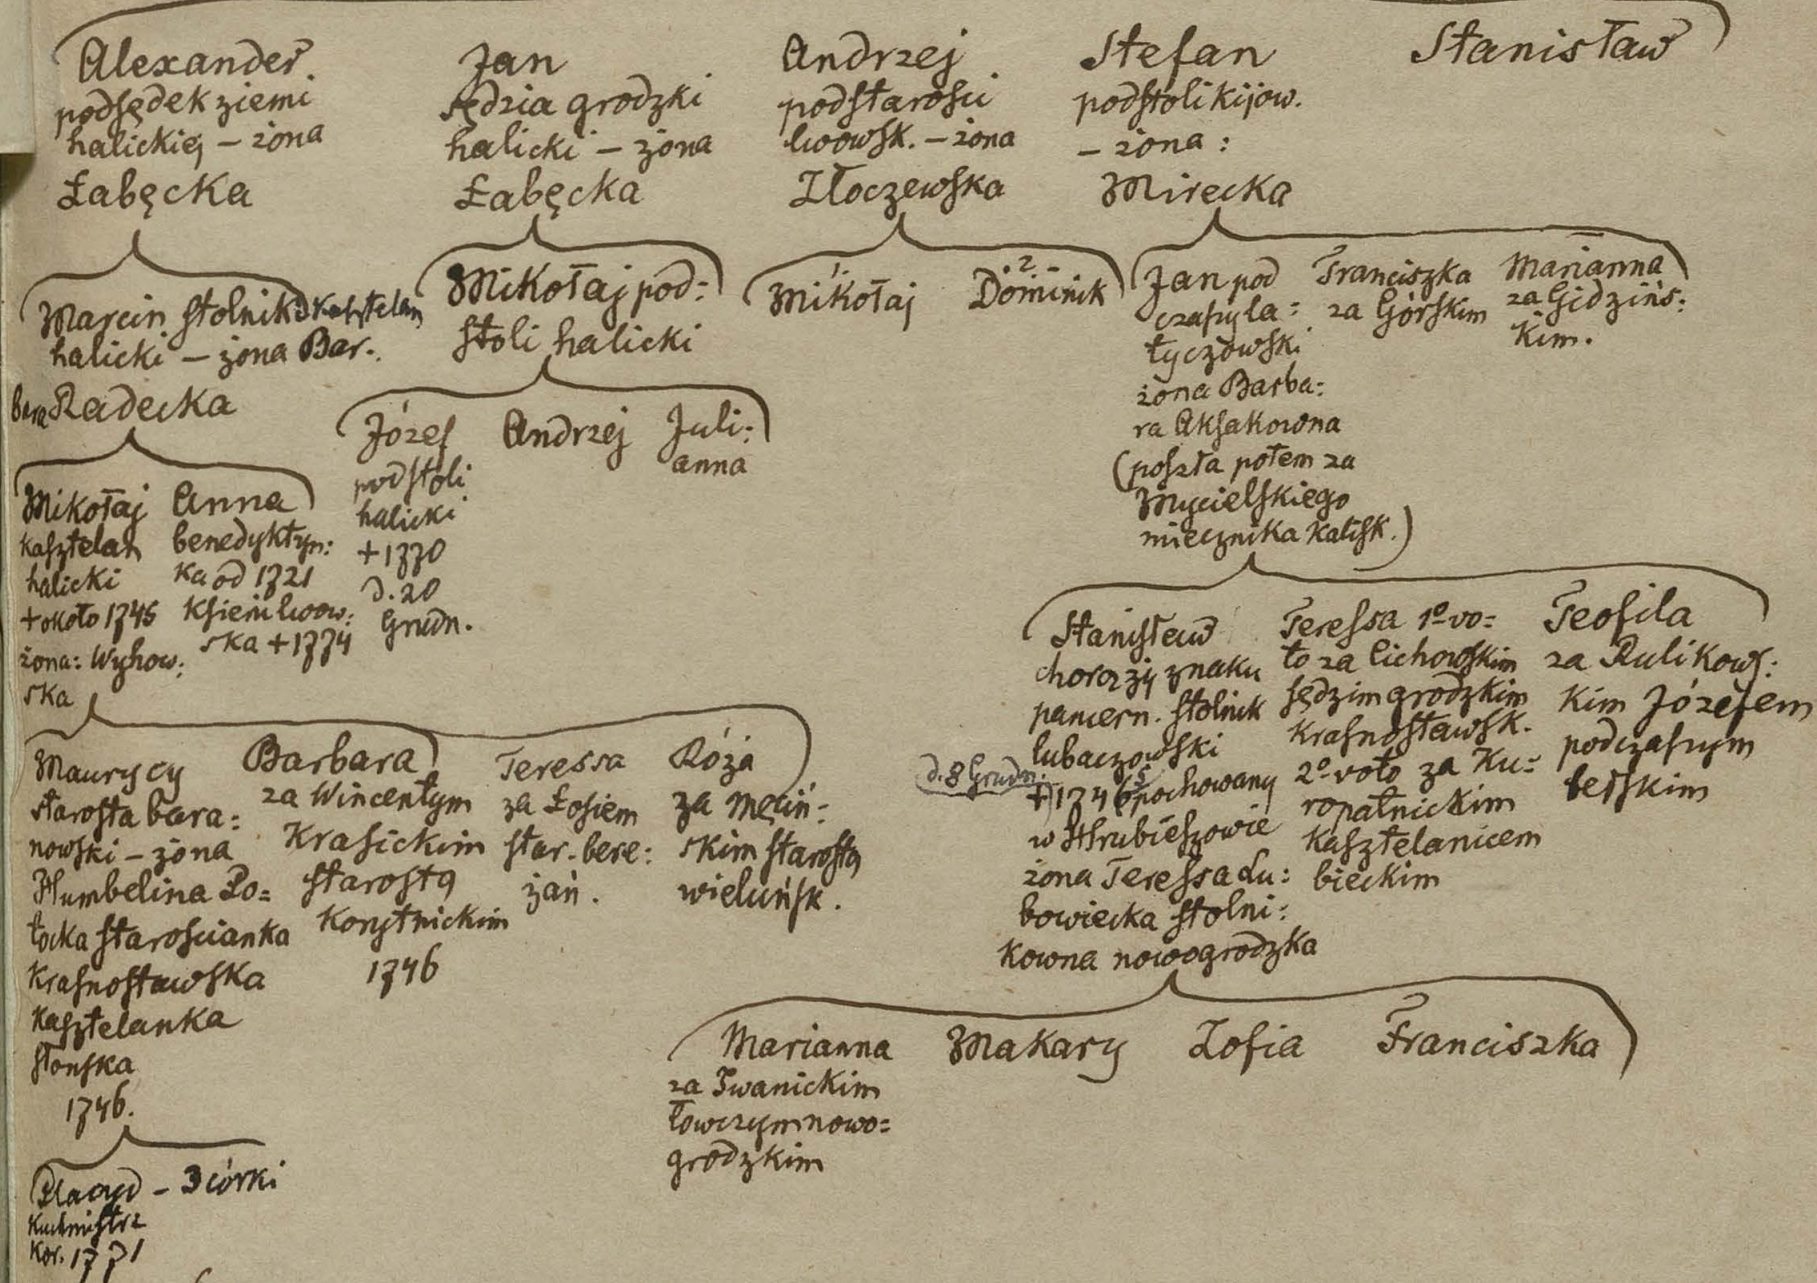 Alexander
podsędek ziemi
halickiej – żona
Łabęcka
Jan
sędzia grodzki
halicki – żona
Łabęcka
Andrzej
podstarości
lwowsk. – żona
Złoczewska
Stefan
podstoli kijow.
– żona :
Mirecka
Stanisław
Marcin stolnik i kasztelan
halicki – żona Bar-
bara Radecka
Mikołaj pod:
stoli halicki
Mikołaj
2
Dominik
Jan pod
czaszy la:
tyczowski
żona Barba:
ra Aksakowna
(poszła potem za
Mycielskiego
miecznika Kalisk.)
Franciszka
za Górskim
Marianna
za Gidzińs:
kim.
Józef
podstoli
halicki
+ 1770
d. 20
Grudn.
Andrzej
Juli:
anna
Mikołaj
kasztelan
halicki
+ około 1745
żona: Wyhow:
ska
Anna
benedyktyn:
ka od 1721
Ksieni lwow:
ska + 1774
Stanisław
chorąży znaku
pancern. stolnik
lubaczowski
d. 8 Grudn.
+ 1746 pochowany
w Hrubieszowie
żona Teressa Du:
bowiecka stolni:
kowna nowogrodzka
Teressa 1º vo:
to za Cichowskim
sędzim grodzkim
krasnostawsk.
2º voto za Ku:
ropatnickim
kasztelanicem
bieckim
Teofila
za Rulikows:
kim Józefem
podczaszym
bełskim
Maurycy
starosta bara:
nowski – żona
Humbelina Po:
tocka starościanka
krasnostawska
kasztelanka
słonska
1746.
Barbara
za Wincentym
Krasickim
starostą
Korytnickim
1746
Teressa
za Łosiem
star. bere:
żań.
Róża
za Męciń:
skim starostą
wieluńsk.
Marianna
za Iwanickim
łowczym nowo:
grodzkim
Makary
Zofia
Franciszka
Placyd – 3 córki
Kuchmistrz
Kor. 1771